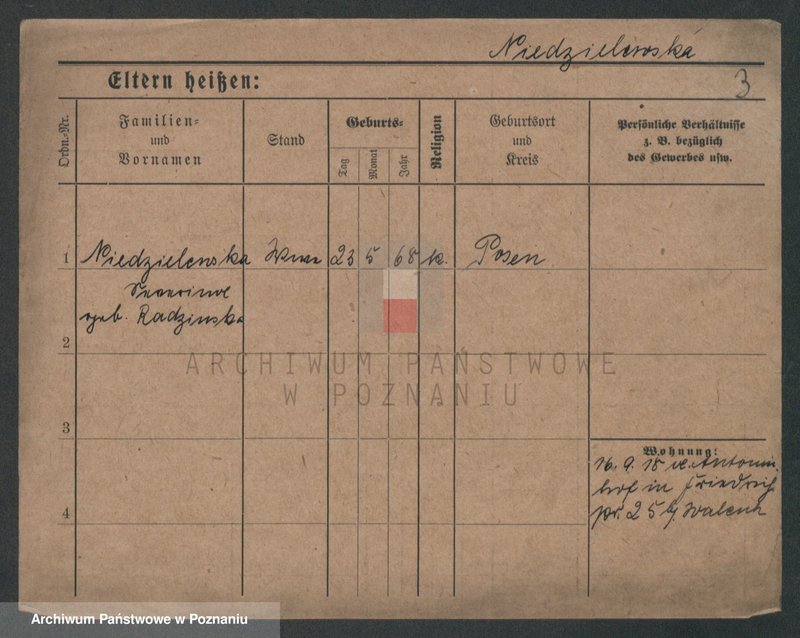 Niedzielewska
3
Eltern heißen:
Ordn.-Nr.
Familien-
und
Vornamen
Stand
Geburts-
Tag
Monat
Jahr
Religion
Geburtsort
und
Kreis
Persönliche Verhältnisse
z. B. bezüglich
des Gewerbes usw.
1 Niedzielewska 23 5 68 k. Posen
geb. Radzinska
2
ARCHIWUM PAŃSTWOWE
W POZNANIU
3
Wohnung:
16. 9. 18 Antonin
hof in Friedrich
25 b/
4
Archiwum Państwowe w Poznaniu